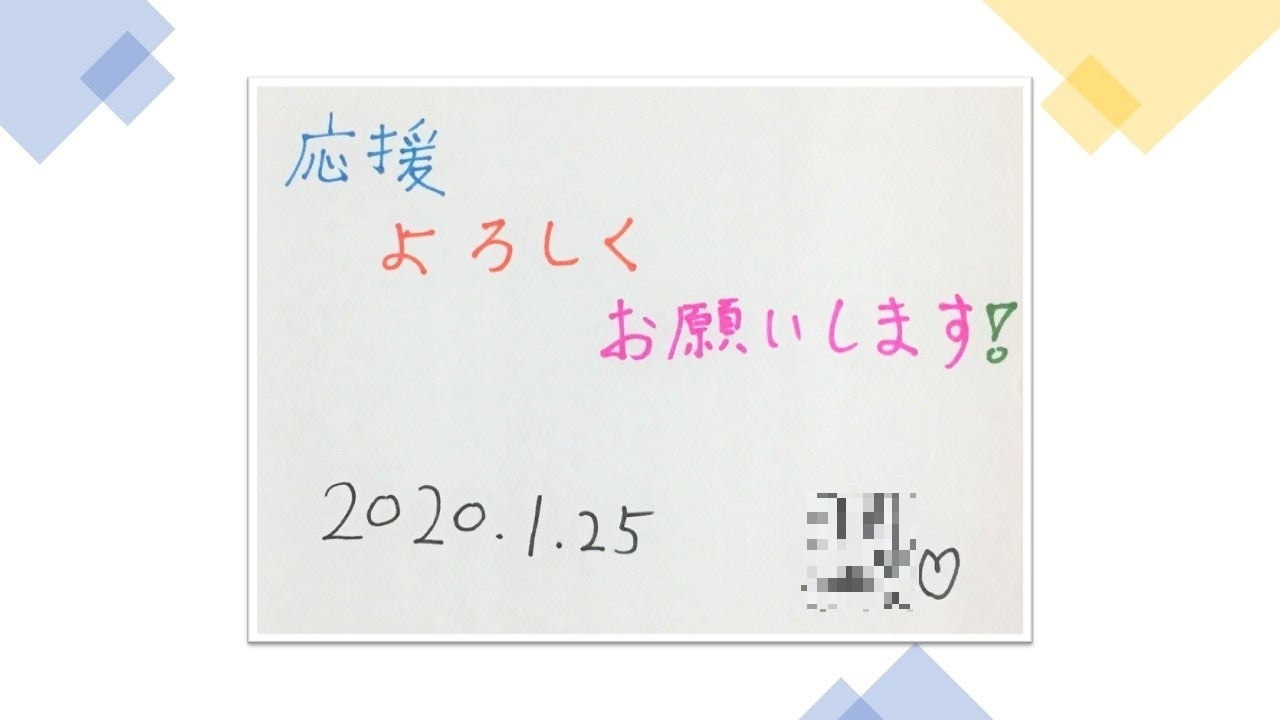 応援
よろしく
お願いします!
2020.1.25
♡